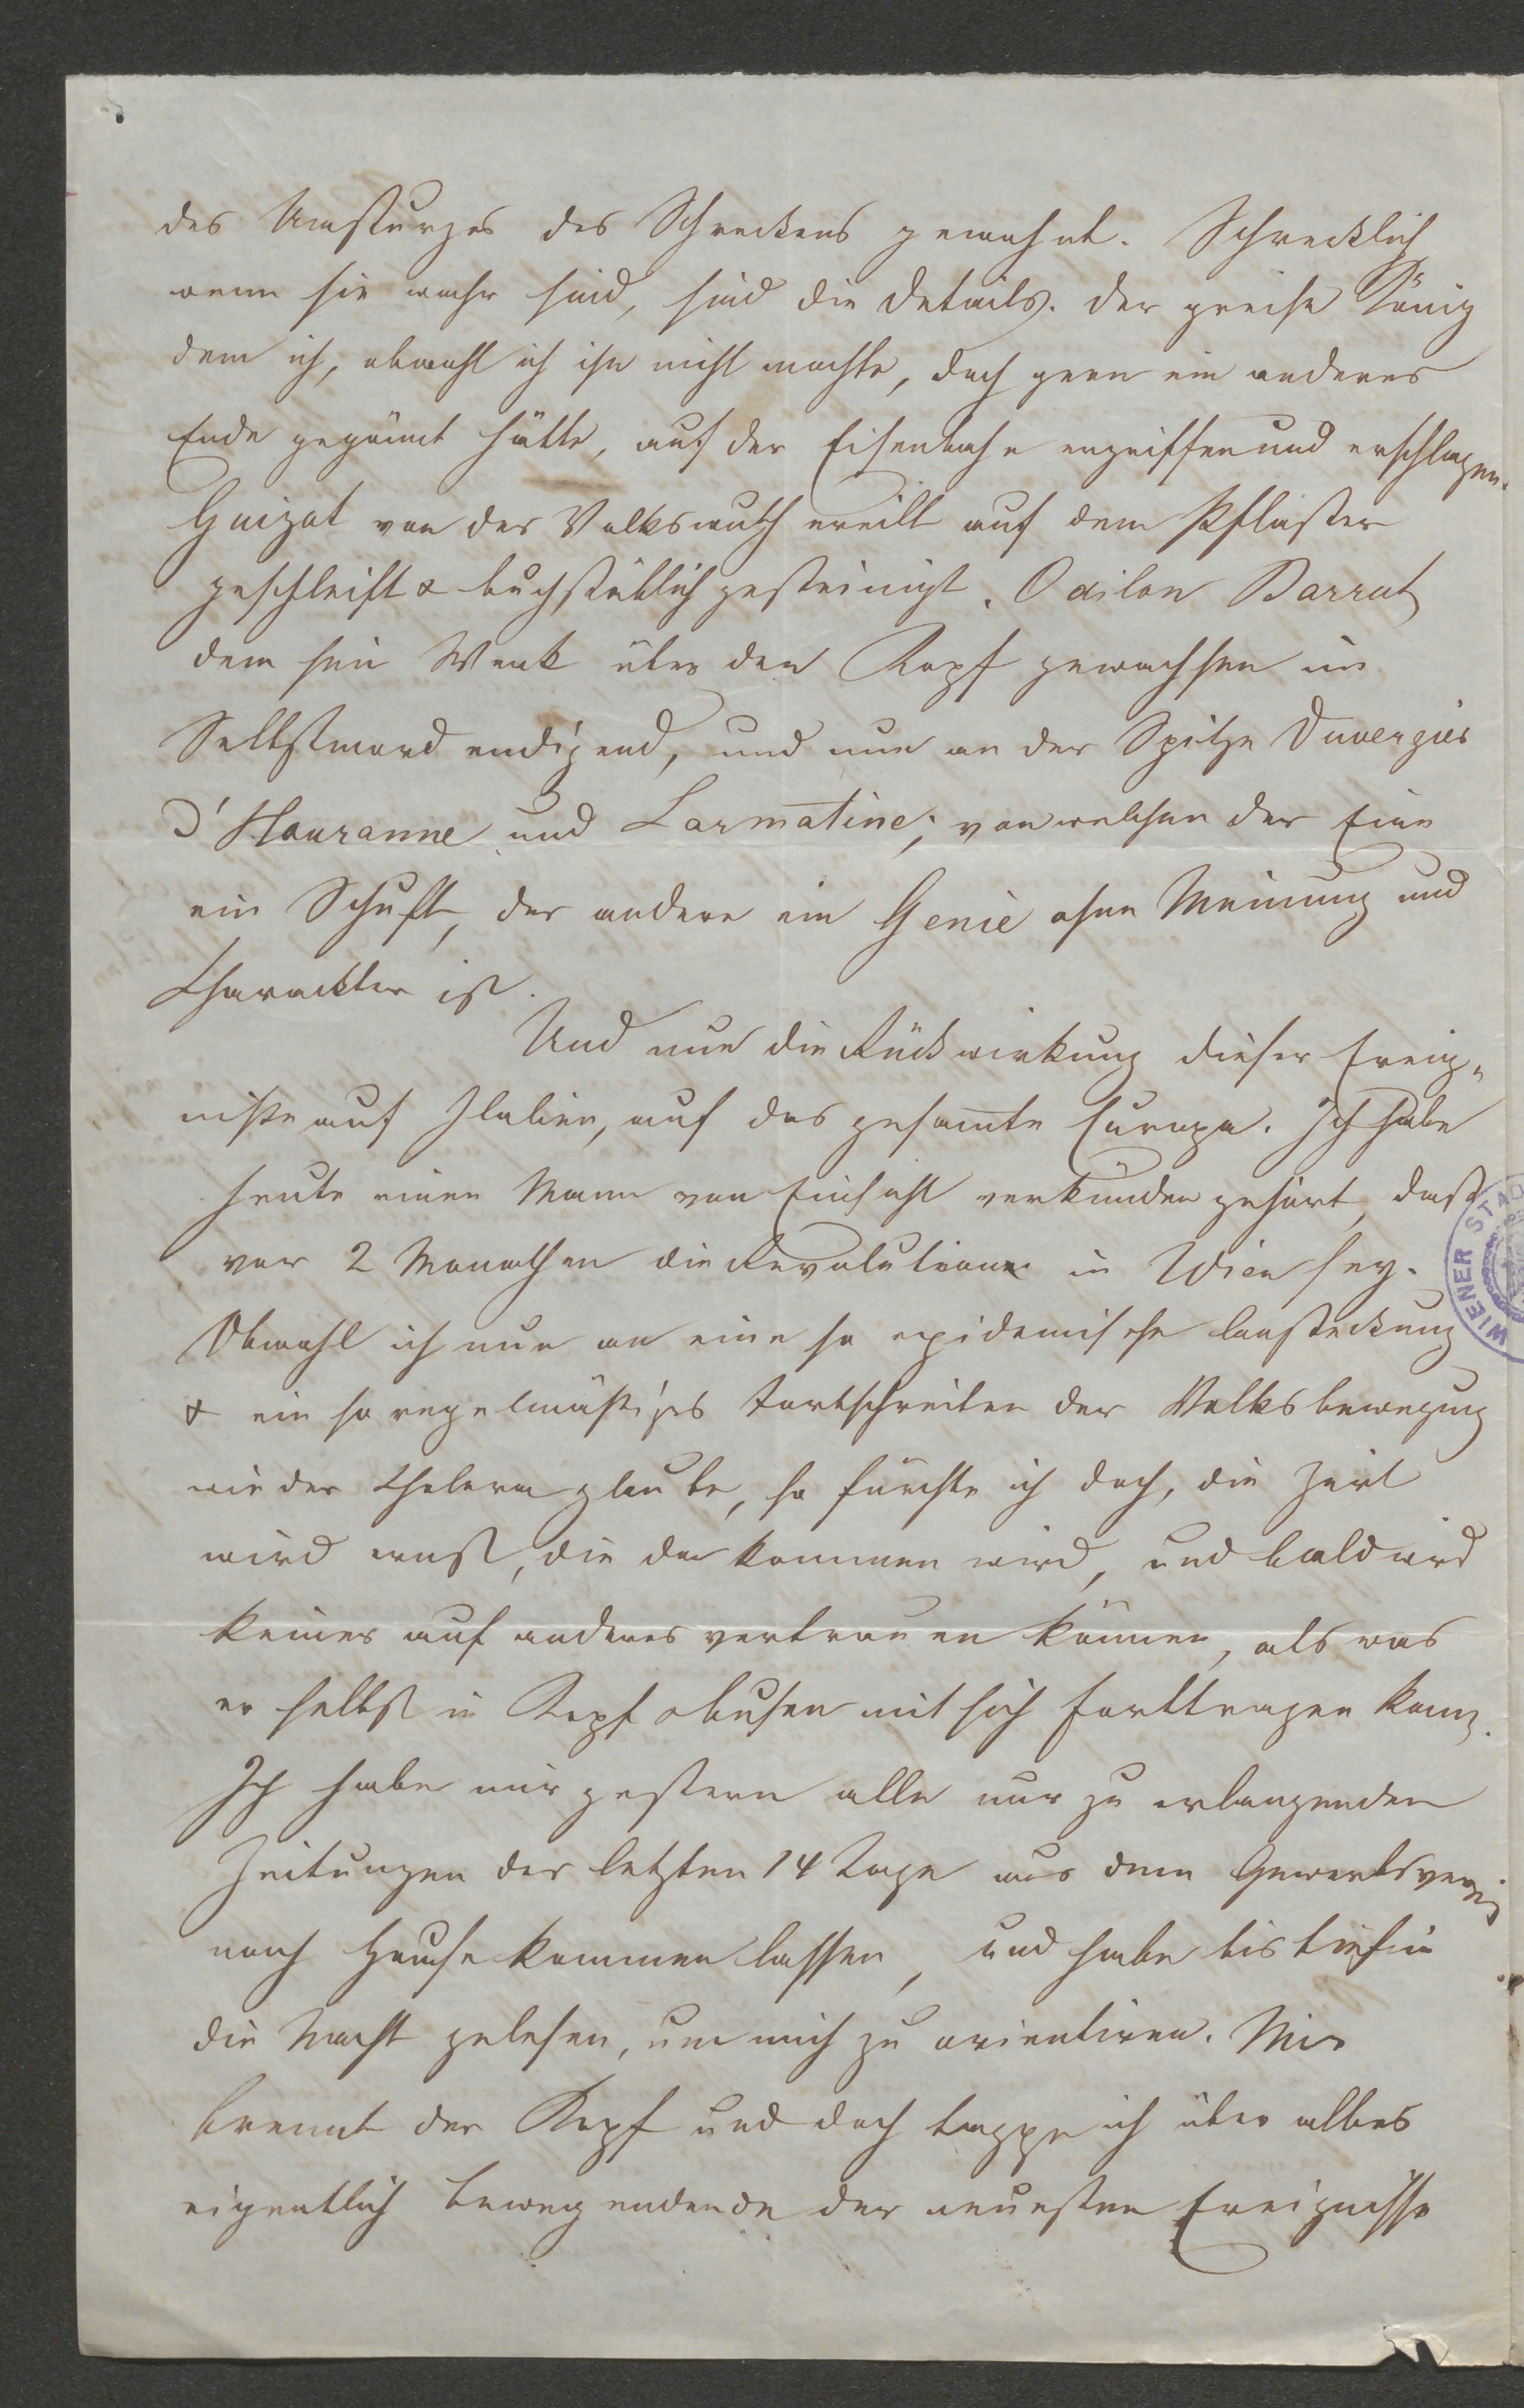 des Umsturzes des Schreckens gewahnt. Schrecklich
wenn sie wahr sind, sind die Details. Der greise König
dem ich, obwohl ich ihn nicht mochte, doch gern ein anderes
Ende gegönnt hätte, auf der Eisenbahn ergriffen und erschlagen.
Guizot von der Volkswuth ereilt auf dem Pflaster
geschleift & buchstäblich gesteinigt. Odilon Barrot
dem sein Werk über den Kopf gewachsen im
Selbstmord endigend, und nun an der Spitze Duvergier
d'Hauranne und Larmatine, von welchen der Eine
ein Schuft, der andere ein Genie ohne Meinung und
Charackter ist.
Und nun die Rückwirkung dieser Ereig„
niße auf Italien, auf das gesam̅te Europa. Ich habe
heute einen Mann von Einsicht verkünden gehört, daß
vor 2 Monathen die Revolution in Wien sey.
Obwohl ich nun an eine so epidemische Ansteckung
& ein so regelmäßiges Fortschreiten der Volksbewegung
wie der Cholera glaube, so fürchte ich doch, die Zeit
wird ernst, die da kommen wird, und bald wird
keiner auf anderes vertrauen können, als was
er selbst in Kopf & Busen mit sich forttragen kann.
Ich habe mir gestern alle nur zu erlangenden
Zeitungen der letzten 14 Tage aus dem Gewerbsverein
nach Hause kommen lassen, und habe bis tief in
die Nacht gelesen, um mich zu orientiren. Mir
brennt der Kopf und doch tappe ich über alles
eigentlich bewegendende der neuesten Ereignisse
WIENER STAD